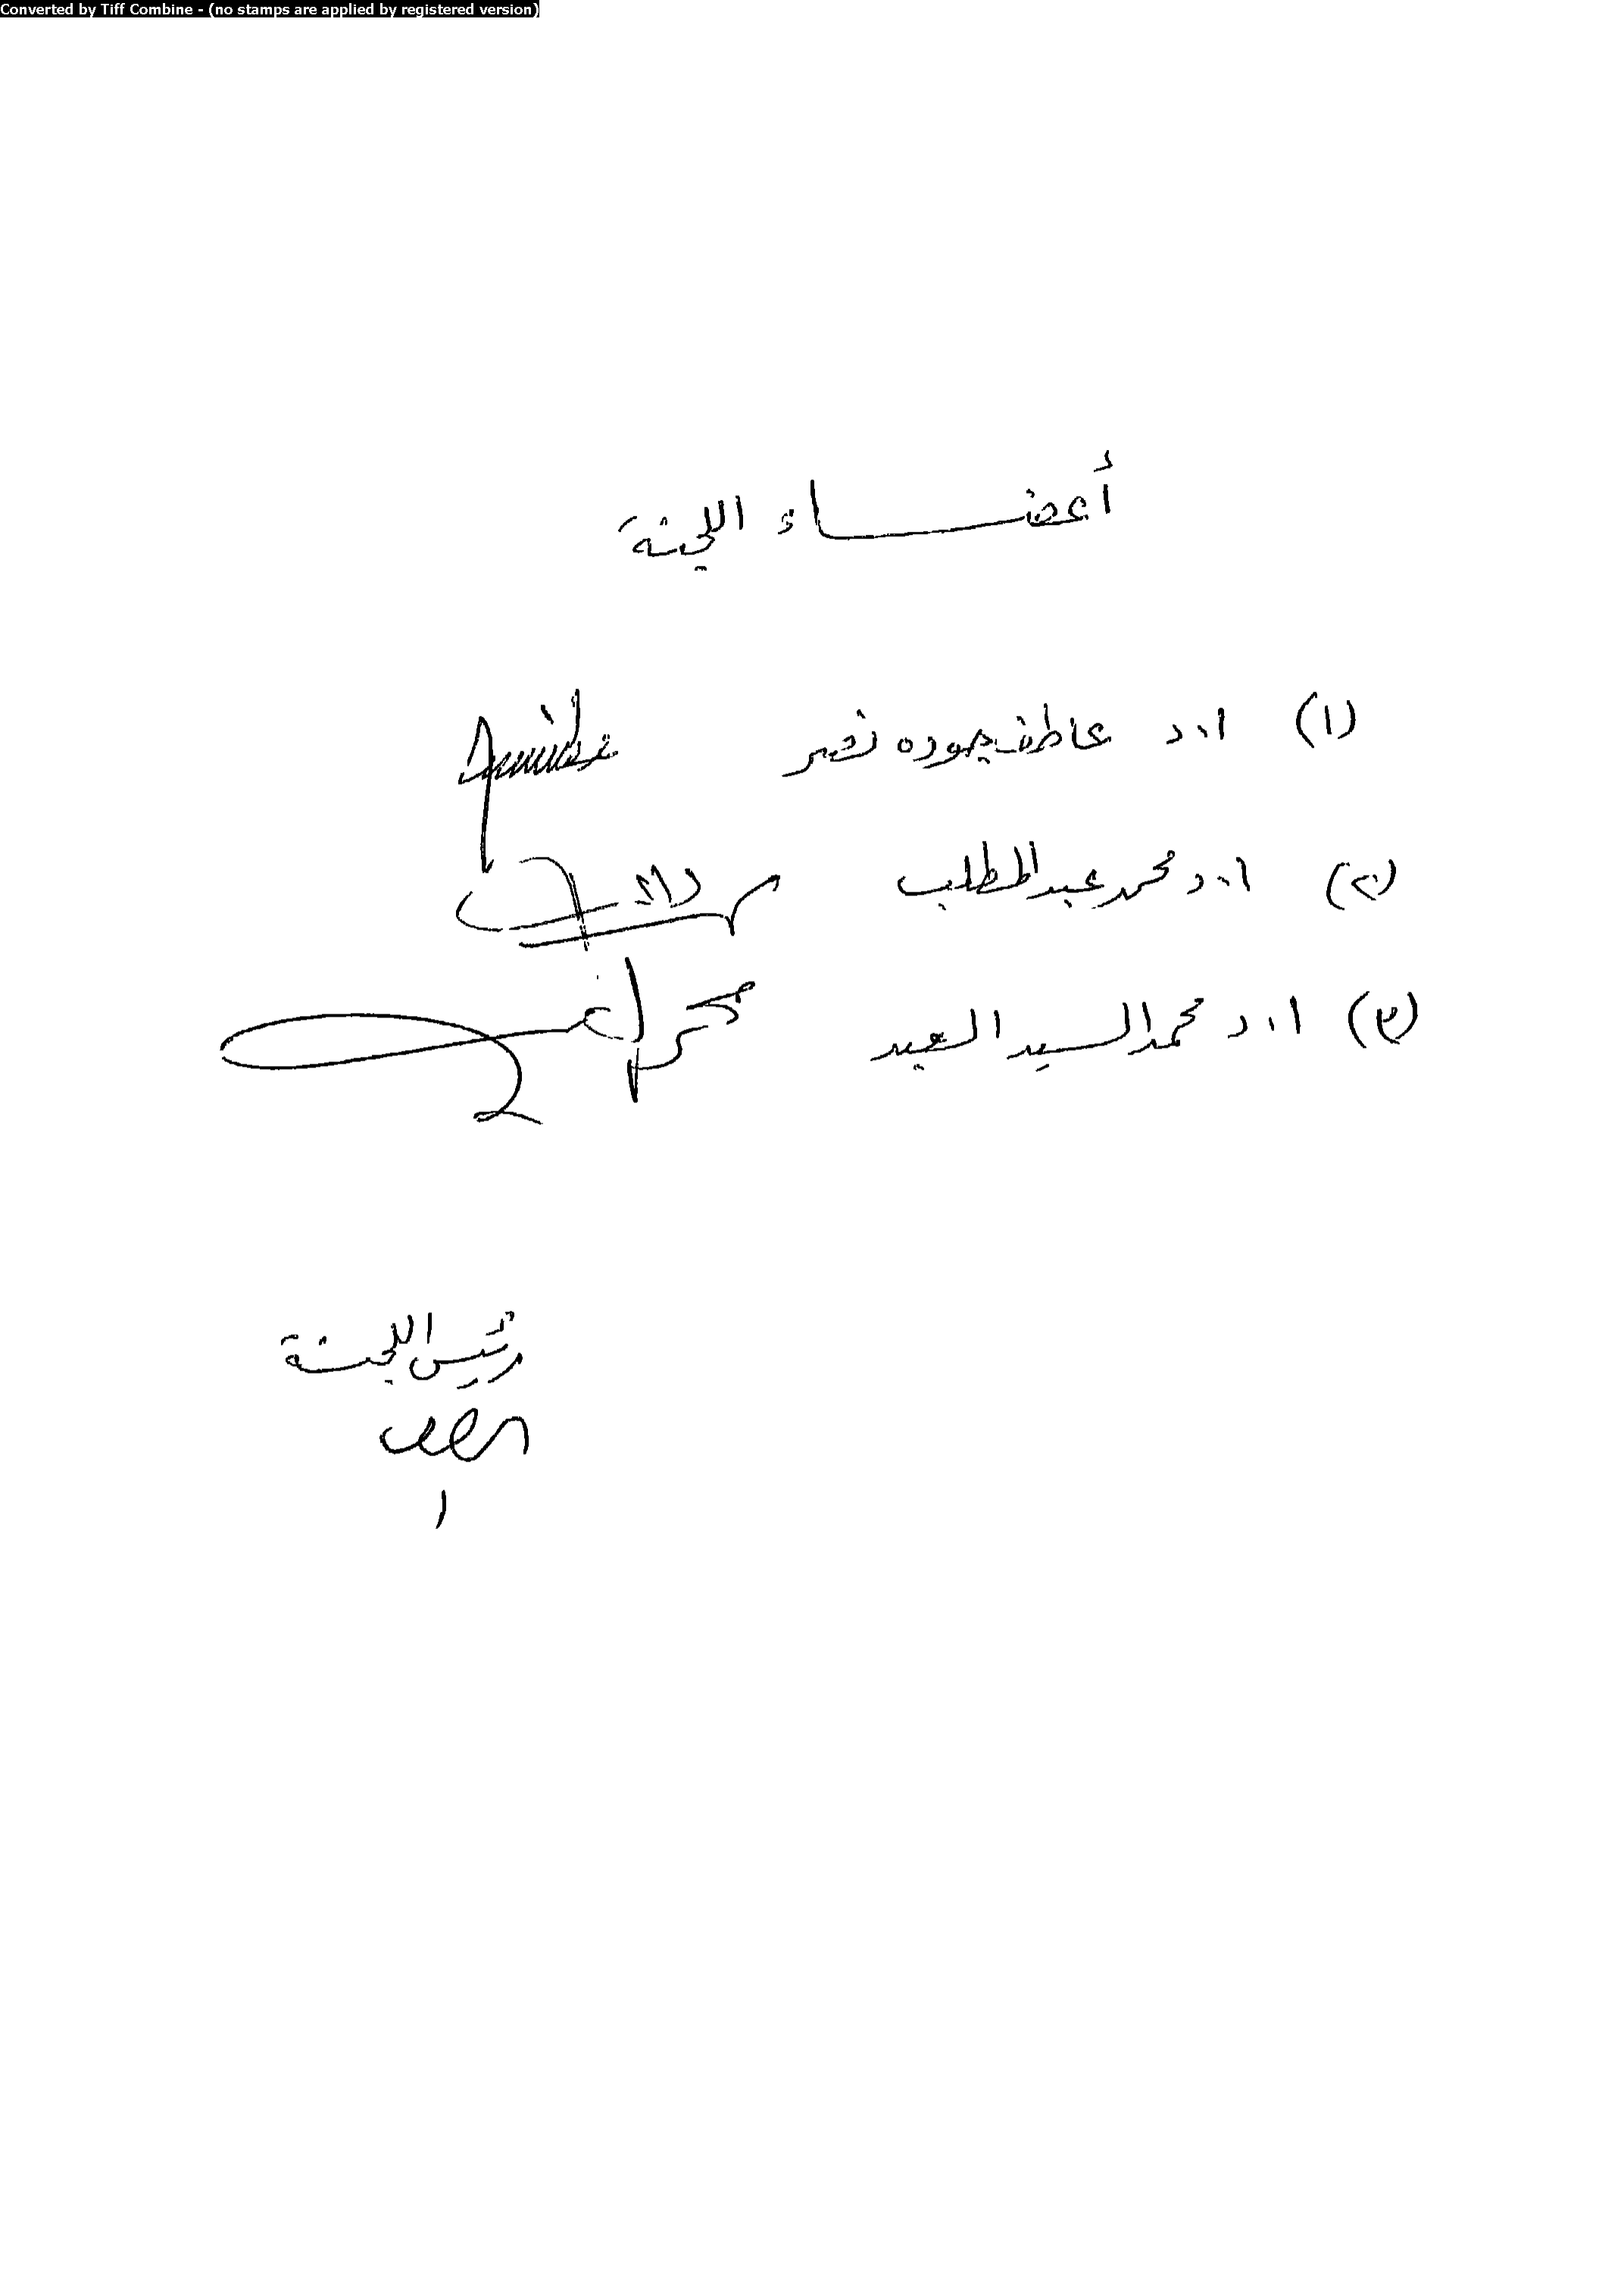 Converted by Tiff Combine - (no stamps are applied by registered version)
أعضـــاء اللجنة
(١) ا.د عاطف جوده نصر
(٢) ا.د محمد عبد المطلب
(٣) ا.د محمد السيد العبد
رئيس اللجنة